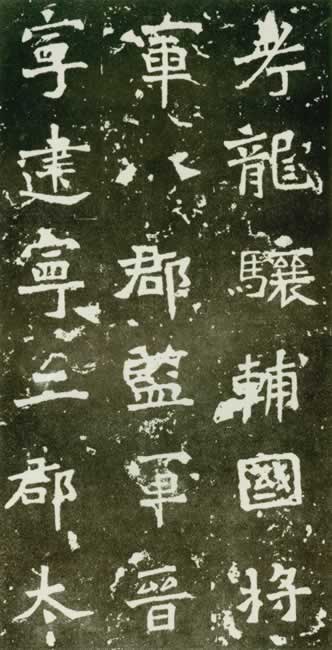 考龍驤輔國將
軍八郡監軍晉
寧建寧二郡太